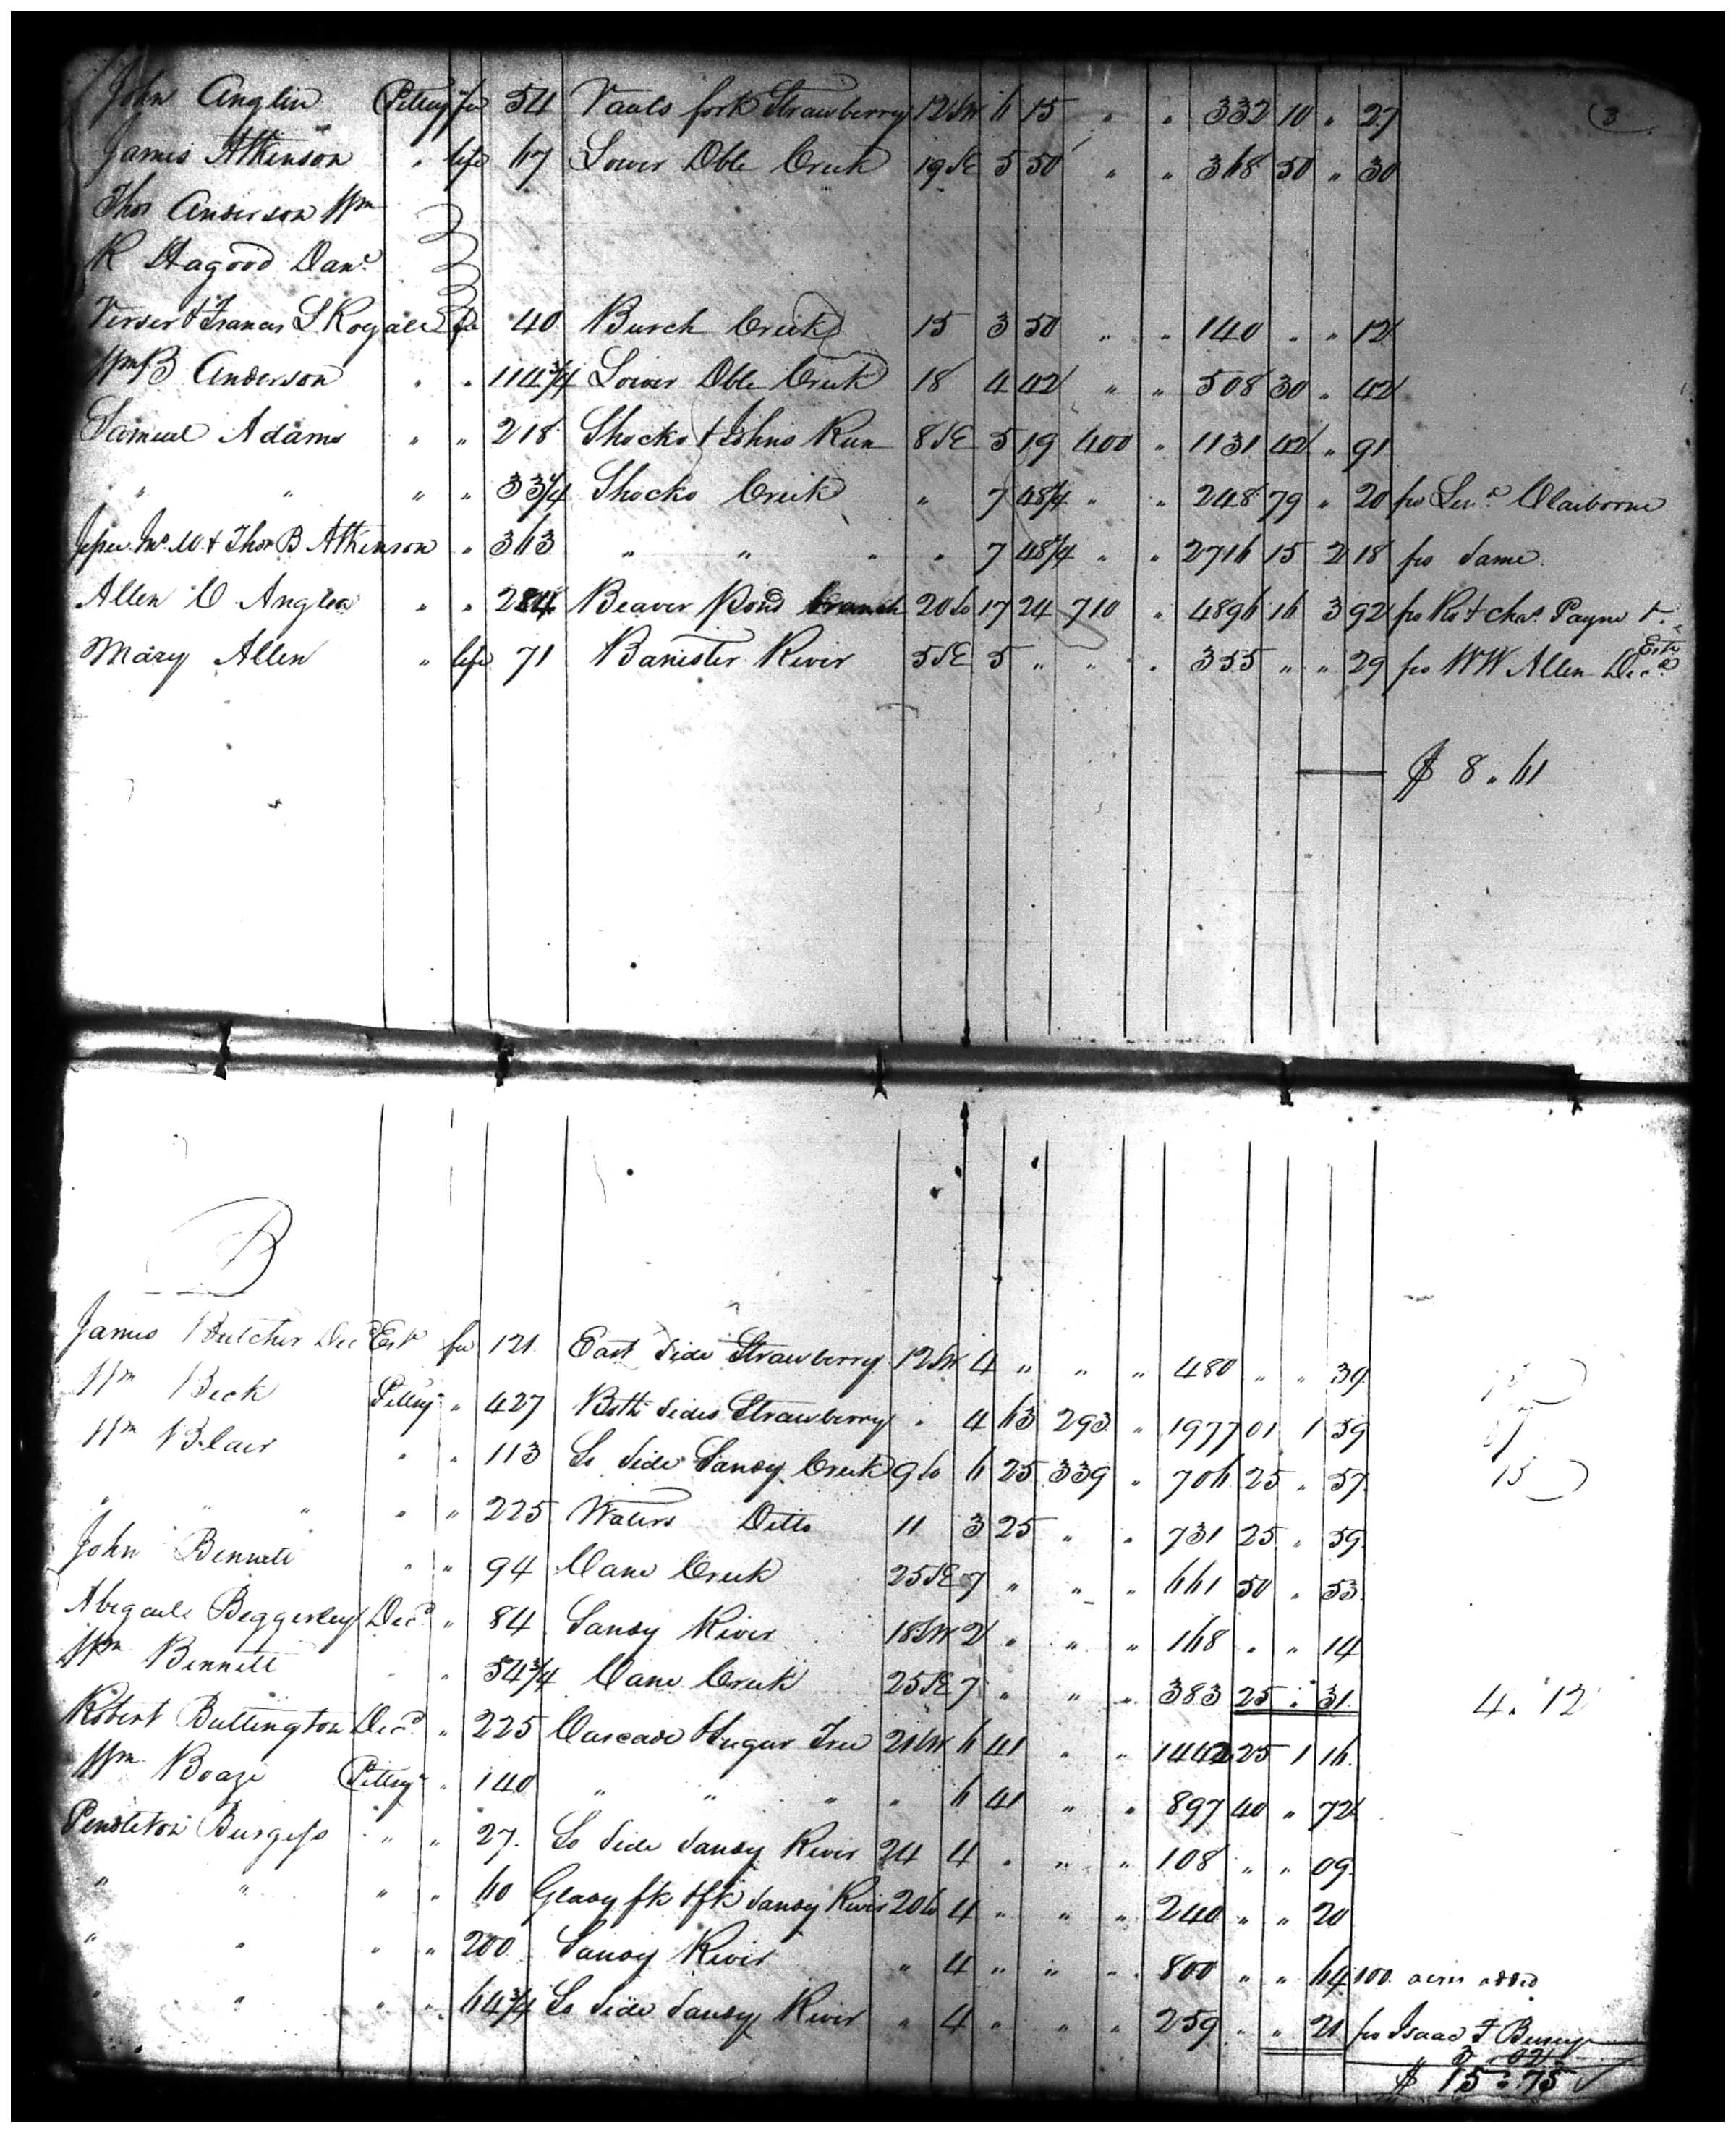 3
John Anglin Pittsya fee 54 Vauls fork Strawberry 12 SW 6 15 " " 332 10 " 27
James Atkinson " life 67 Lower Dble Creek 19 SE 5 50 " " 368 50 " 30
Thos Anderson Wm
R Hagood Danl
Verser & Francis L Royall fee 40 Burch Creek 15 3 50 " " 140 " " 12
Wm B Anderson " " 114 3/4 Lower Dble Creek 18 4 42 " " 508 30 " 42
Samuel Adams " " 218 Shocko & Johns Run 8 SE 5 19 400 " 1131 42 " 91
" " " " 33 1/4 Shocko Creek " 7 48 1/4 " " 248 79 " 20 fro Leod Claiborne
Jesse Mc & Thos B Atkinson " 363 " " " " 7 48 1/4 " " 2716 15 2 18 fro same
Allen C Anglea " " 284 Beaver Pond branch 20 So 17 24 710 " 4896 16 3 92 fro Ro & Chas Payne
Mary Allen " life 71 Banister River 5 SE 5 " " " 355 " " 29 fro WW Allen Decd Est
$ 8 . 61
B
James Belcher Decd Est fee 121 East side Strawberry 12 SW 4 " " " 480 " " 39
Wm Beck Pittsya " 427 Both sides Strawberry " 4 63 293 " 1977 01 1 59
Wm Blair " " 113 So side Sandy Creek 9 So 6 25 339 " 706 25 " 57
" " " " " 225 Waters Ditto 11 3 25 " " 731 25 " 59
John Bennett " " 94 Cane Creek 25 SE 7 " " " 661 50 " 53
Abigale Beggerley Decd " 84 Sandy River 18 SW 2 " " " 168 " " 14
Wm Bennett " " 54 3/4 Cane Creek 25 SE 7 " " " 383 25 " 31 4 . 12
Robert Bullington Decd " 225 Cascade & Sugar Tree 21 SW 6 41 " " 1442 25 1 16
Wm Boaze Pittsya " 140 " " " " 6 41 " " 897 40 " 72
Pendleton Burgess " " 27 So side Sandy River 24 4 " " " 108 " " 09
" " " " 60 Glady fk & fk Sandy River 20 So 4 " " " 240 " " 20
" " " " 200 Sandy River " 4 " " " 800 " " 64 100 acres added
" " " " 64 3/4 So side Sandy River " 4 " " " 259 " " 21 fro Isaac F
3 . 02
$ 15 . 75